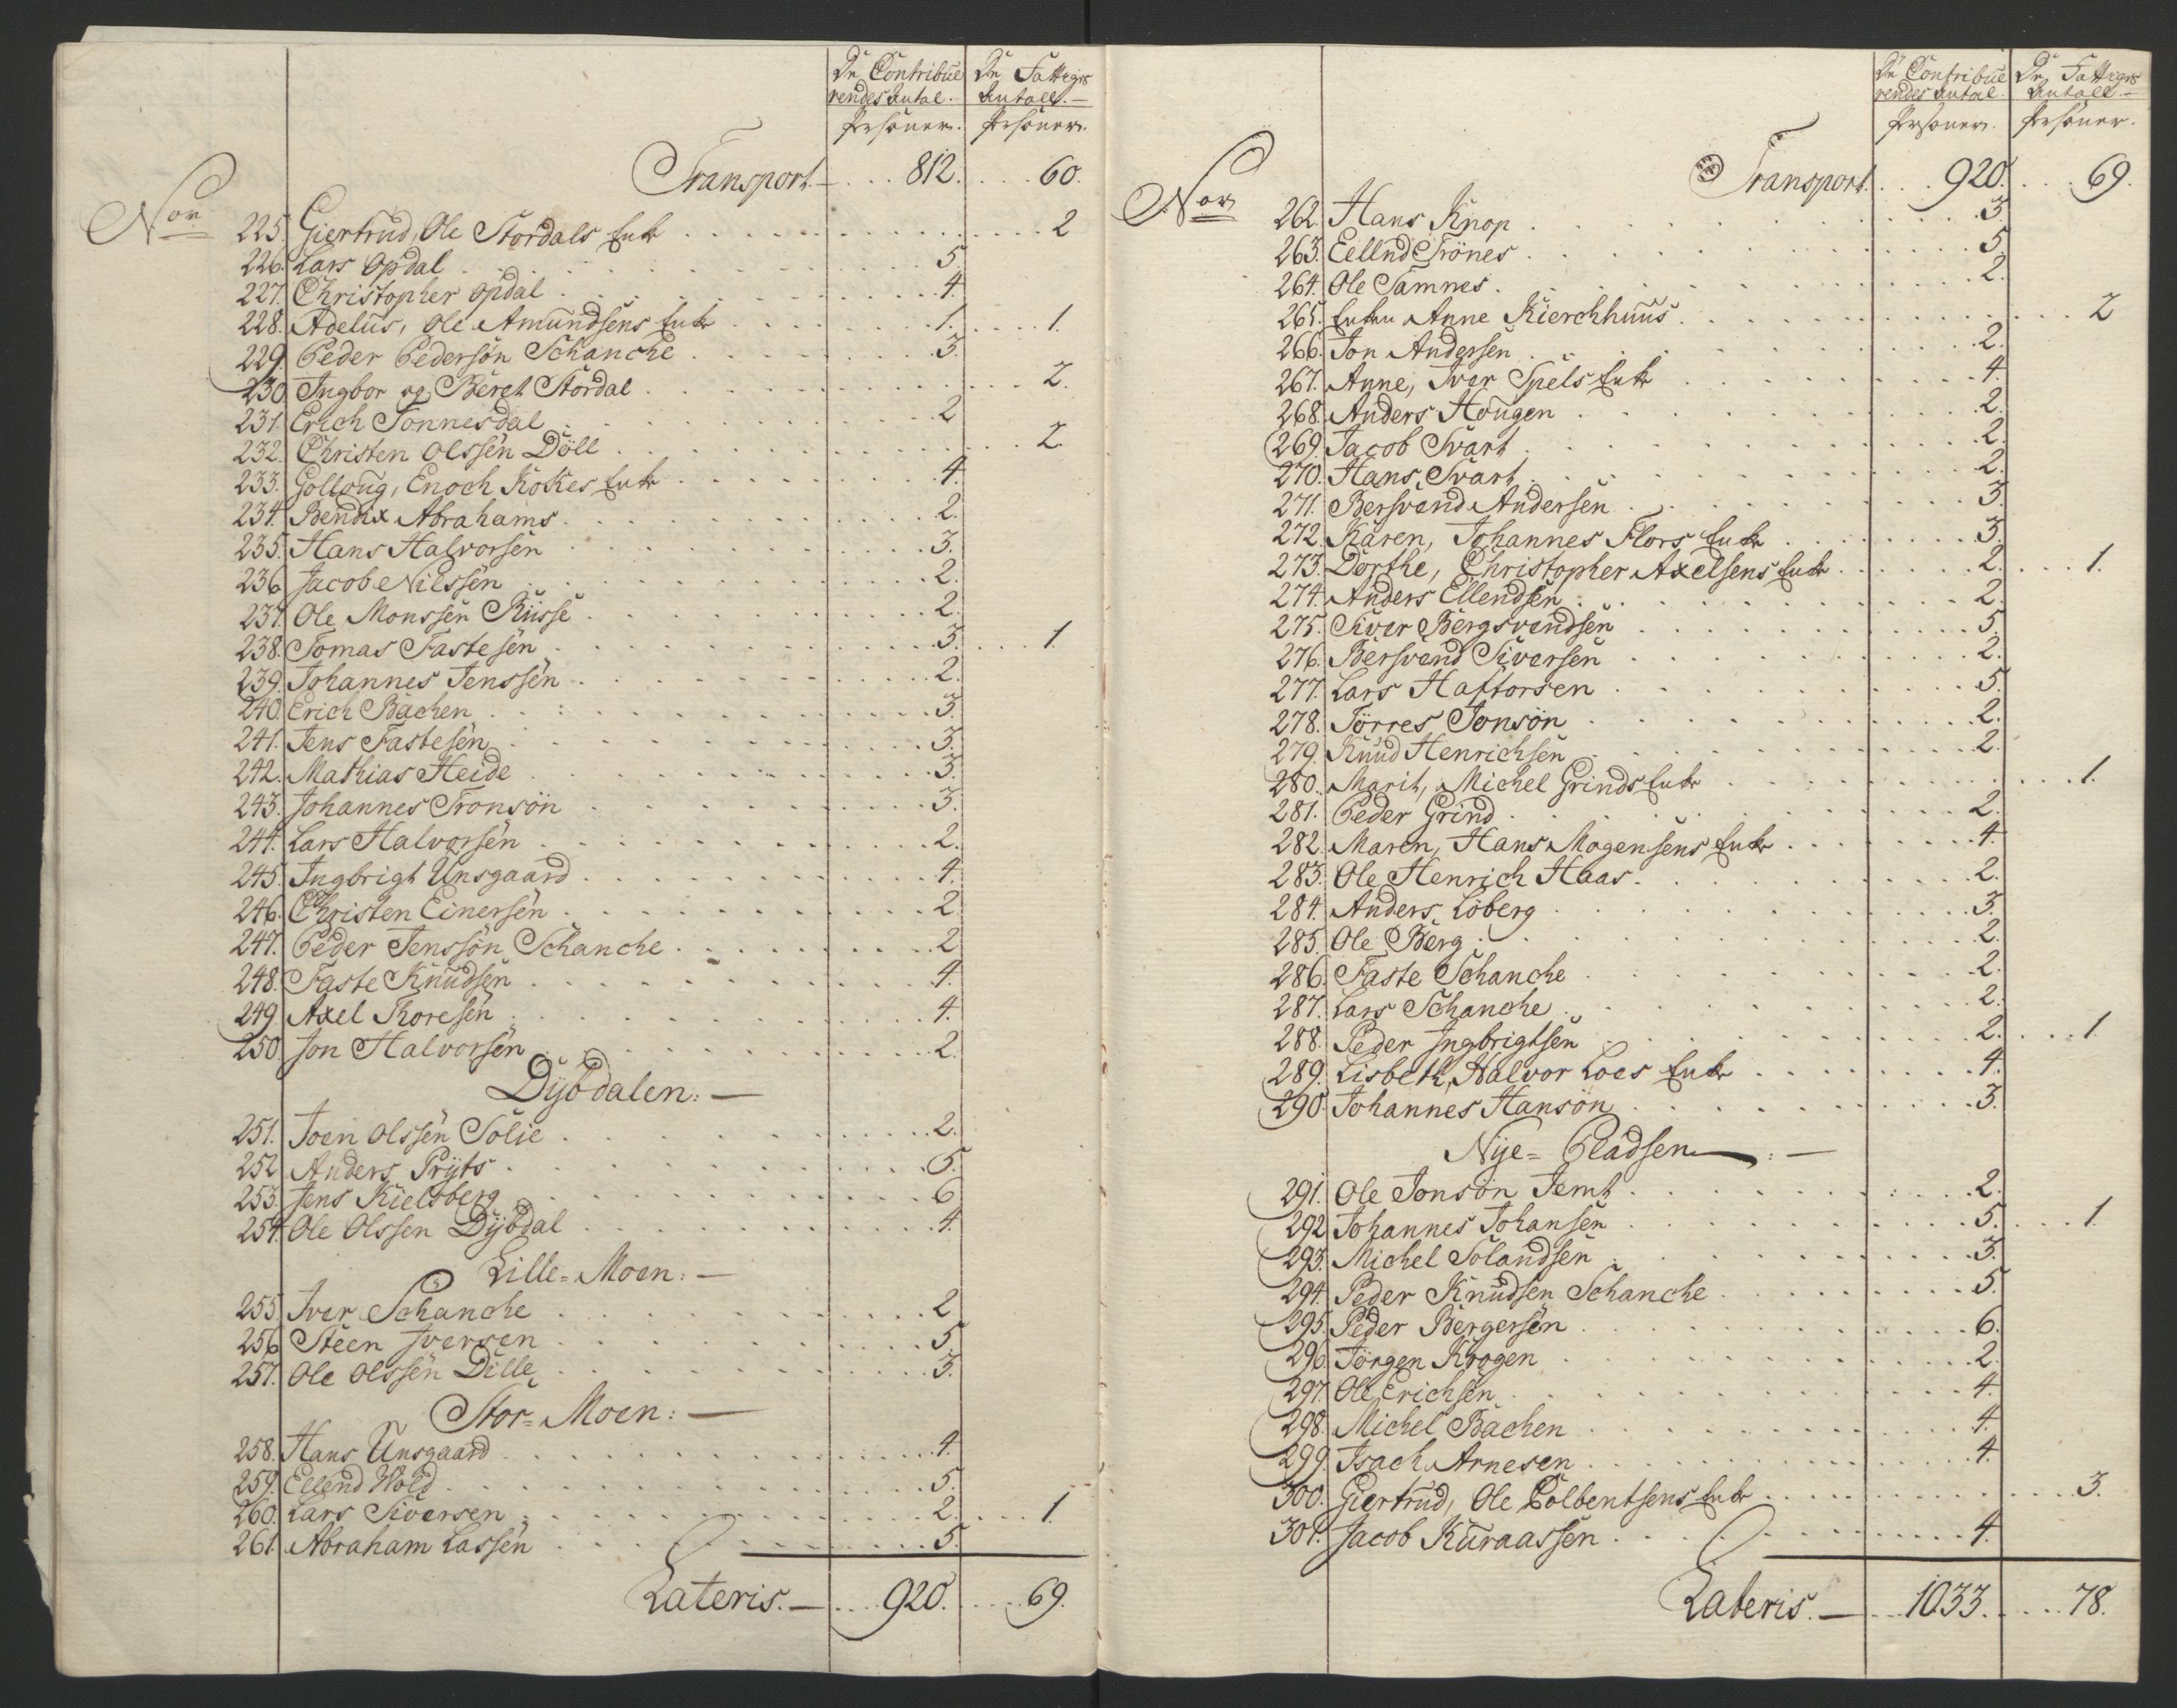 De Contribue De Fattiges
rendes Antal. Antall.
Persöner. Persöner.
Transport 812. 60.
Nor
225. Giertrud, Ole Stordals Enke 2
226. Lars Opdal 5
227. Christopher Opdal 4.
228. Adelus, Ole Amundsens Enke 1. 1.
229. Peder Pedersön Schanche 3.
230. Ingbor og Beret Stordal 2.
231. Erich Tonnesdal 2
232. Christen Olssen Döll 2.
233. Golloug, Enoch Kokes Enke 4.
234. Bendix Abrahams 2.
235. Hans Halvorsen 3.
236. Jacob Nilssen 2.
237. Ole Monssen Russe 2.
238. Tomas Fastesen 5. 1.
239. Johannes Jenssen 2.
240. Erich Bachen 3.
241. Jens Fastesen 3.
242. Mathias Heide 3.
243. Johannes Tronsön 3.
244. Lars Halvorsen 2.
245. Ingbrigt Unsgaard 4.
246. Christen Einersen 2.
247. Peder Jenssön Schanche 2
248. Faste Knudsen 4.
249. Axel Thoresen 4.
250. Jon Halvorsen 2.
Dybdalen: —
251. Joen Olssen Solie 2.
252. Anders Pryts 5.
253. Jens Kielsberg 6
254. Ole Olssen Dybdal 4.
Lille=Moen: —
255. Iver Schanche 2
256. Steen Iversen 5
257. Ole Olssen Dille 3.
Stor=Moen: —
258. Hans Unsgaard 4.
259. Ellend Wold 5.
260. Lars Siversen 2. 1.
261. Abraham Lassen 5.
Lateris. — 920. 69.
De Contribue De Fattiges
rendes Antal. Antall.
Persöner. Persöner.
Transport. 920. 69.
Nor
262. Hans Knop 3.
263. Eellnd Trönes 5
264. Ole Tamnes 2.
265. Enken Anne Kierchhuus 2
266. Jon Andersen 2.
267. Anne, Iver Spels Enke 4.
268. Anders Hougen 2.
269. Jacob Svart 2.
270. Hans Svart 2.
271. Bersvend Andersen 3.
272. Karen, Johannes Flors Enke 3.
273. Dorthe, Christopher Axelsens Enke 2. 1.
274. Anders Ellendsen 2.
275. Siver Bergsvendsen 5.
276. Bersvend Siversen 2.
277. Lars Haftorsen 5.
278. Törres Jonsön 2.
279. Knud Henrichsen 2.
280. Marit, Michel Grinds Enke 1.
281. Peder Grind 2.
282. Maren, Hans Mogensens Enke 4.
283. Ole Henrich Haas 2.
284. Anders Löberg 3.
285. Ole Berg 2.
286. Faste Schanche 2.
287. Lars Schanche 2.
288. Peder Ingbrigtsen 2. 1.
289. Lisbeth, Halvor Loes Enke 4.
290. Johannes Hansön 3.
Nye= Pladsen: —
291. Ole Jonsön Jemt 2.
292. Johannes Johansen 5. 1.
293. Michel Solandsen 3.
294. Peder Knudsen Schanche 5.
295. Peder Bergersen 6.
296. Jörgen Krogen 2.
297. Ole Erichsen 4.
298. Michel Bachen 4.
299. Isach Arnesen 4.
300. Giertrud, Ole Colbentsens Enke 3.
301. Jacob Kuraassen 4.
Lateris. — 1033. 78.